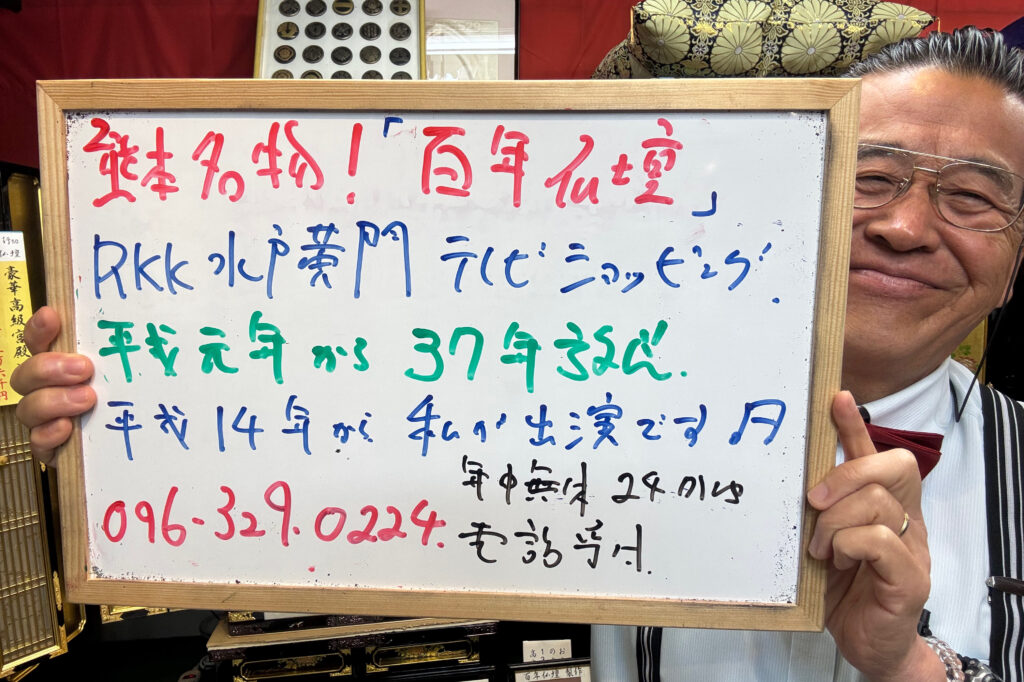 熊本名物!「百年仏壇」
RKK水戸黄門 テレビショッピング.
平成元年から 37年放送.
平成14年から 私が出演です
年中無休 24
096-329.0224.
電話受付.
豪華高級宮殿
百年仏壇 製作